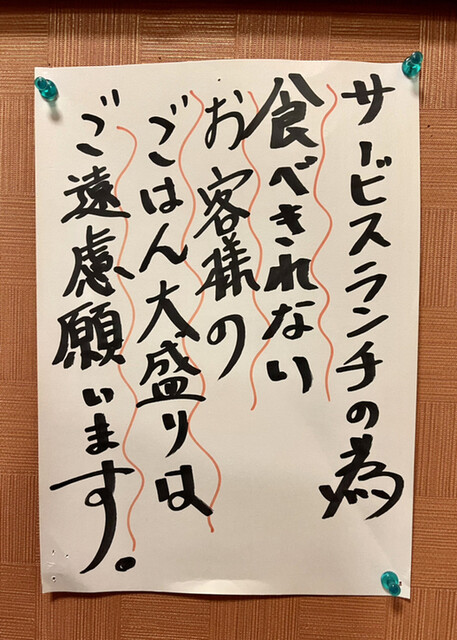 サービスランチの為
食べきれない
お客様の
ごはん大盛りは
ご遠慮願います。